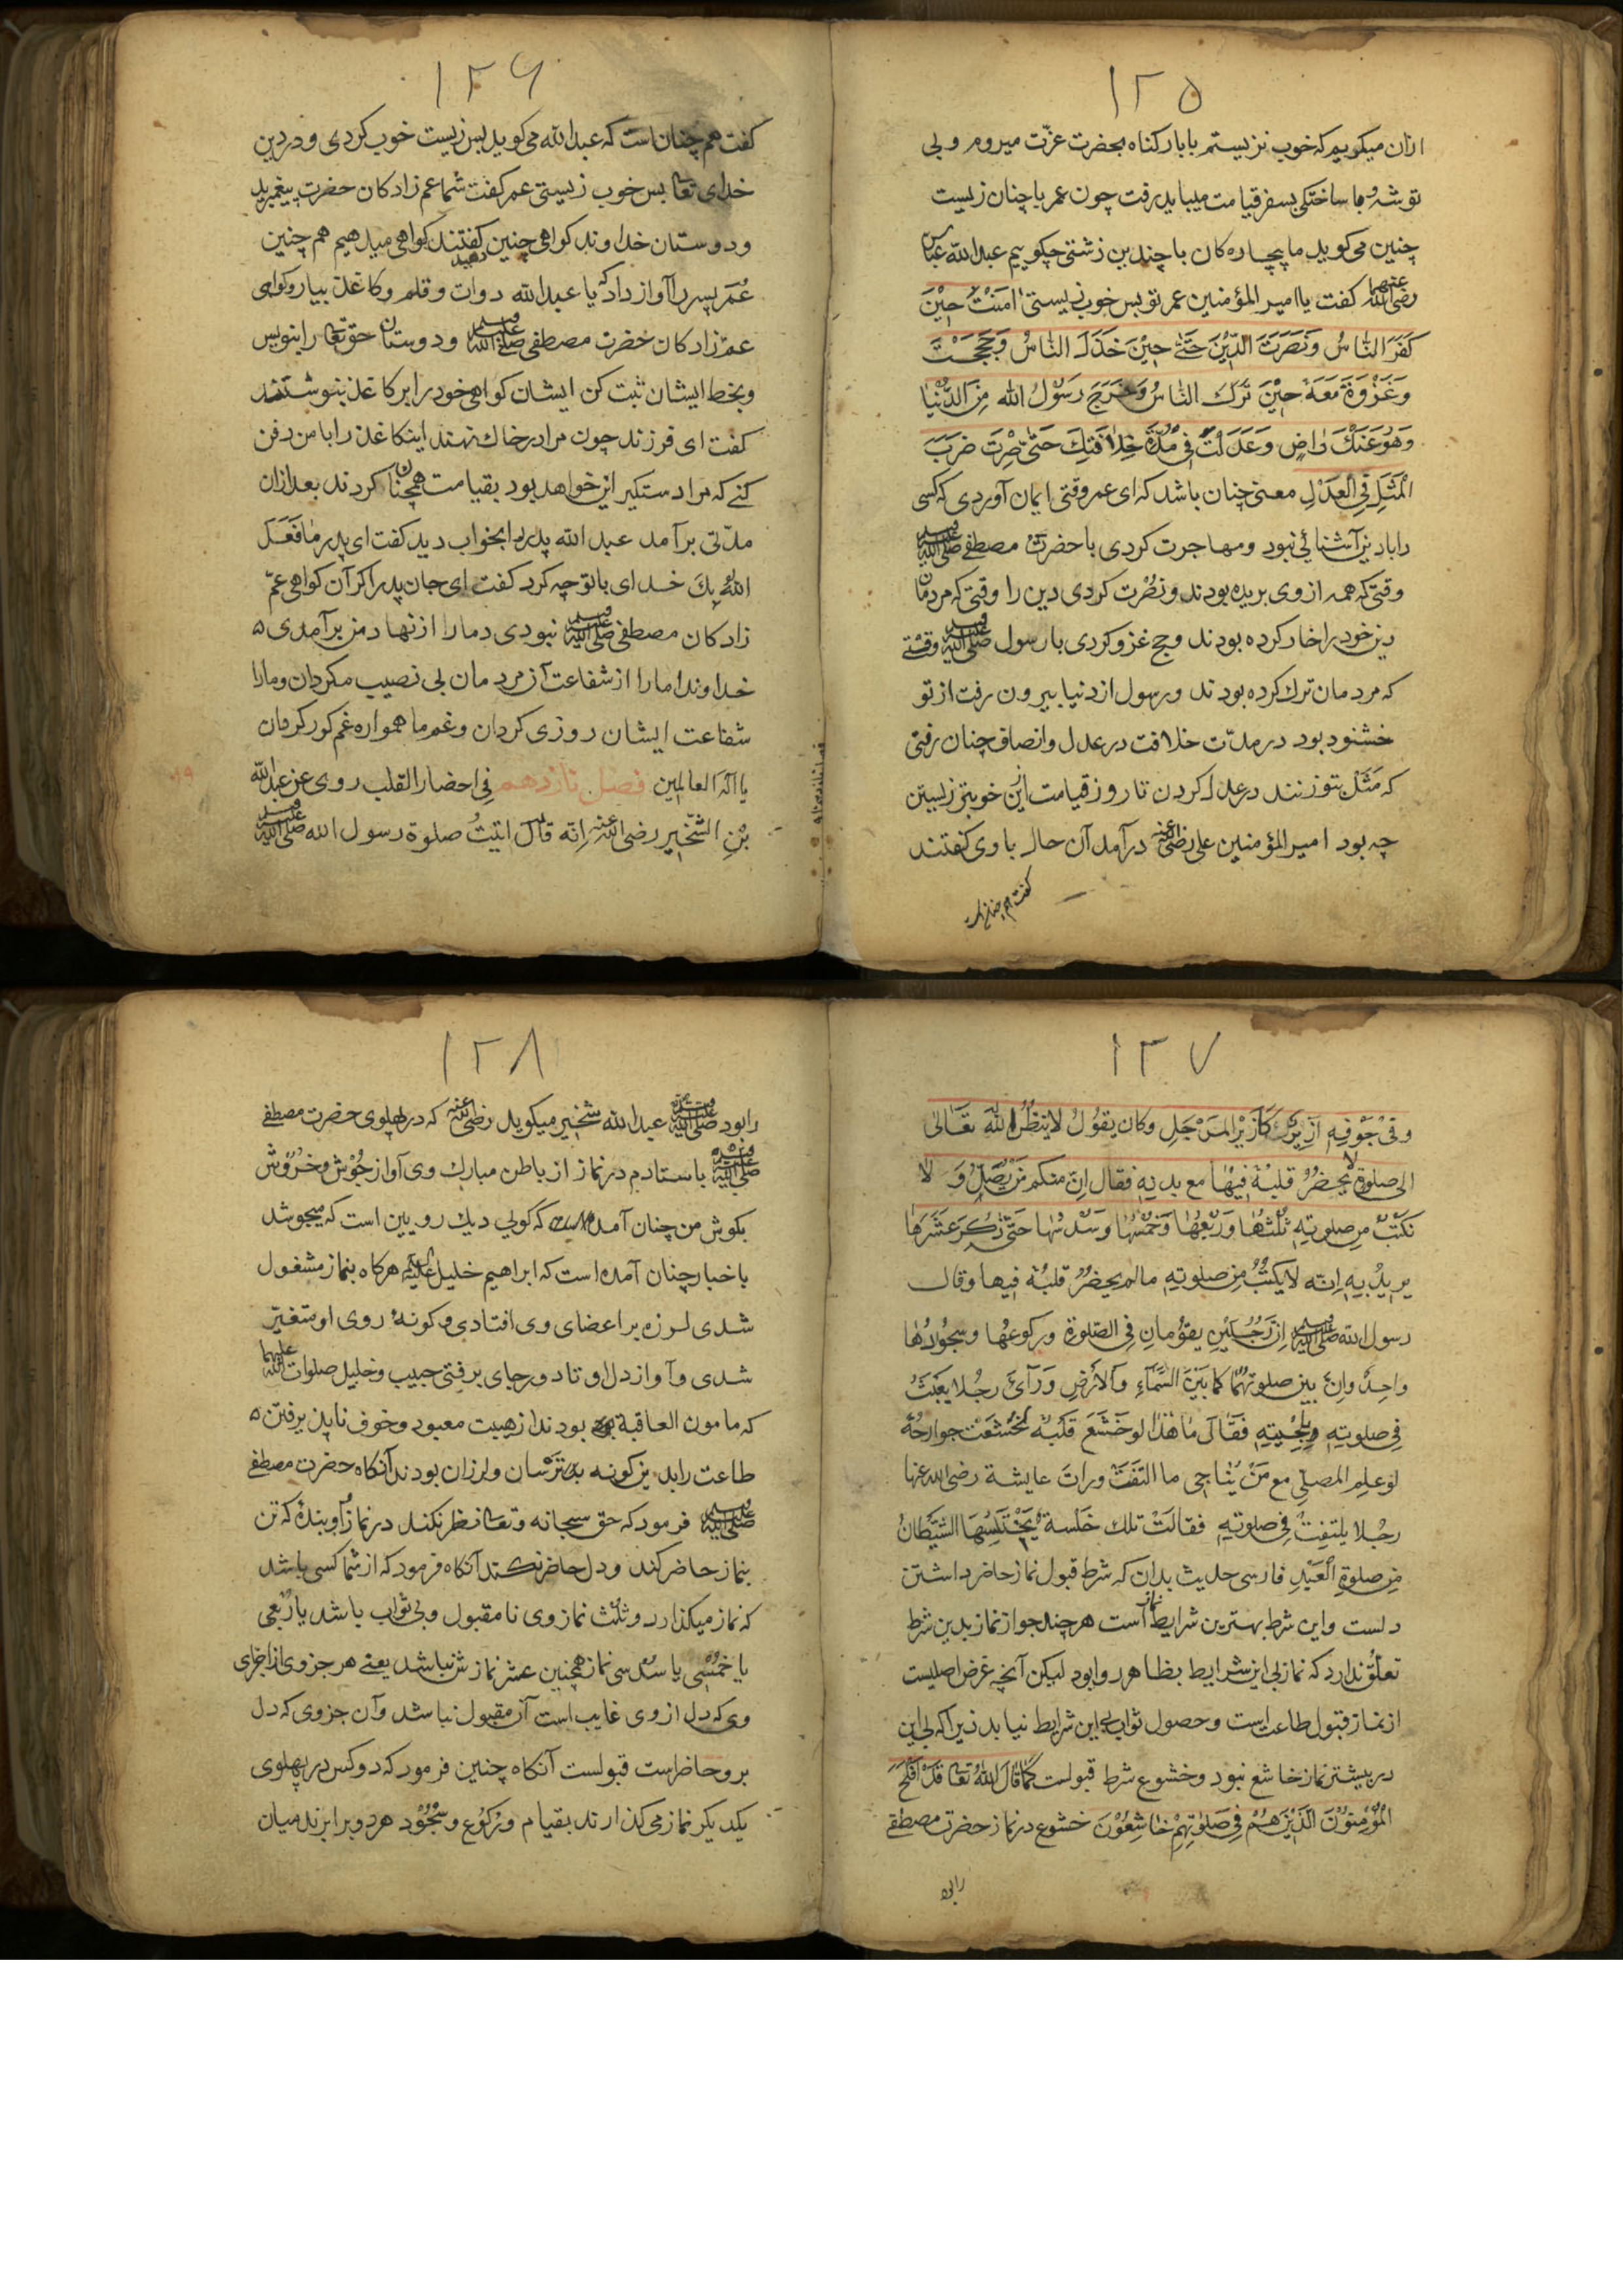 ۱۲۵
ازان میکوییم که خوب نزیستم بابار کناه بحضرت عزّت میروم و بی
توشه و نا ساختکی بسفر قیامت میباید رفت چون عمر باچنان زیست
چنین می کوید ما بیچاره کان با چندین زشتی چکوییم عبد الله عباس
رضی الله عنهما کفت یا امیر المؤمنین عمر تو بس خوب زیستی اٰمَنْتَ حِیْنَ
كَفَرَ النَّاسُ وَنَصَرْتَ الدِّيْنَ حَتّٰى حِيْنَ خَذَلَ النَّاسُ وَحَجَجْتَ
وَغَزْوَةَ مَعَهُ حِيْنَ تَرَكَ النَّاسُ وَخَرَجَ رَسُوْلُ الله مِنَ الدُّنْيَا
وَهُوَ عَنْكَ رٰاضٍ وَعَدَلْتَ فِي مُدَّةِ خِلاٰفَتِكَ حَتّٰى صِرْتَ ضَرَبَ
الْمَثَلِ فِي الْعَدْلِ معنی چنان باشد که ای عمر وقتی ایمان آوردی که کسی
را بادین آشنائی نبود و مهاجرت کردی با حضرت مصطفی صلی الله علیه وسلم
وقتی که همه از وی بریده بودند و نصرت کردی دین را وقتی که مردمان
دین خود را خار کرده بودند و حج غزو کردی با رسول صلی الله علیه وسلم وقتی
که مردمان ترک کرده بودند و رسول از دنیا بیرون رفت از تو
خشنود بود در مدّت خلافت در عدل و انصاف چنان رفتی
که مَثَل بتو زنند در عدل کردن تا روز قیامت ازین خوبتر زیستن
چه بود امیر المؤمنین علی رضی الله عنه درآمد آن حال با وی کفتند
کفت هم چنان است
۱۲۶
کفت هم چنان است که عبد الله می کوید بس زیست خوب کردی و در دین
خدای تعالی بس خوب زیستی عمر کفت شما عم زاد کان حضرت پیغمبرید
و دوستان خداوند کواهی چنین دهید کفتند کواهی میدهیم هم چنین
عُمَر پسر را آواز داد که یا عبد الله دوات و قلم و کاغذ بیار و کواهی
عمّ زاد کان حضرت مصطفی صلی الله علیه وسلم و دوستان حق تعالی را بنویس
و بخط ایشان ثبت کن ایشان کواهی خود را بر کاغذ بنوشتند
کفت ای فرزند چون مرا در خاک نهند اینکاغذ را با من دفن
کنے که مرا دستکیر این خواهد بود بقیامت همچنان کردند بعد ازان
مدّتی برآمد عبد الله پدر را بخواب دید کفت ای پدر مٰا فَعَلَ
اللهُ بِكَ خدای با تو چه کرد کفت ای جان پدر اکر آن کواهی عمّ
زاد کان مصطفی صلی الله علیه وسلم نبودی دمار از نهاد من برآمدی ه
خداوندا ما را از شفاعت آن مردمان بی نصیب مکردان و مارا
شفاعت ایشان روزی کردان و غم ما همواره غم کور کردان
یا اله العالمین فصل نازدهم فی احضار القلب روی عن عبد الله
بْنِ الشّخّير رضی الله عنه انّه قال اتیتُ صلوة رسول الله صلی الله علیه وسلم
۱۲۷
وفي جَوْفِهِ اَزِيْزٌ كَاَزِيْزِ المِرْجَلِ وكان يقُوْلُ لا ينظُرُ اللهُ تَعَالٰى
الى صلوةٍ لا يَحضُرُ قلبُهُ فيهٰا مع بدنِهِ فقال اِنّ منكم مَنْ يُصَلِّ وَلا
تكتبُ مِن صلوتِهِ ثُلُثُهَا وَرُبْعُهَا وَخُمْسُهَا وَسُدْسُهَا حَتّٰى ذُكِرَ عَشَرَهَا
يريدُ بِهِ اِنّه لا يَكتبُ مِن صلوتِهِ مالم يحضُرُ قلبُهُ فيها وقال
رسول الله صلی الله علیه وسلم اِنّ رَجُلَيْنِ يقوُمانِ فِي الصّلوةِ وركوعُها وسجُودُها
واحِدٌ واِنّ بين صلوتَهُمَا كما بَيْنَ السَّمَآءِ وَالاَرْضِ وَرَآىَ رجُلا يَعبَثُ
فی صلوتِهِ بِلِحْيَتِهِ فَقَالَ مٰا هٰذٰا لو خَشَعَ قَلبُهُ لَخَشَعَتْ جوارحُهُ
لو عَلِمَ المصلّي مع مَنْ يُنٰاجي ما التَفَتَ ورات عايشة رضی الله عنها
رجُلا يلتفِتُ فِي صلوتِهِ فقالَتْ تلك خَلْسة يَخْتَلِسُهَا الشّيْطانُ
مِن صلوةِ الْعَبْدِ فارسی حدیث بدان که شرط قبول نماز حاضر داشتن
دلست واین شرط بهترین شرایط نماز است هرچند جواز نماز بدین شرط
تعلّق ندارد که نماز بی این شرایط بظاهر روا بود لیکن آنچه غرض اصلیست
از نماز قبول طاعت است و حصول ثواب بی این شرایط نیاید زیرا که بی این
در بیشتر نماز خاشع نبود و خشوع شرط قبولست كَمَا قَالَ اللهُ تَعَالٰى قَدْ اَفْلَحَ
الْمُؤْمِنُوْنَ الَّذِيْنَ هُمْ فِي صَلوٰتِهِمْ خٰاشِعُوْنَ خشوع در نماز حضرت مصطفی
را بود
۱۲۸
را بود صلی الله علیه وسلم عبد الله شخیر میکوید رضی الله عنه که در پهلوی حضرت مصطفی
صلی الله علیه وسلم باستادم در نماز از باطن مبارک وی آواز جُوْش و خُرُوْش
بکوش من چنان آمد که کویی دیک رویین است که میجوشد
باخبار چنان آمده است که ابراهیم خلیل علیه السلام هر کاه بنماز مشغول
شدی لرزه بر اعضای وی افتادی و کونهٔ روی او متغیّر
شدی و آواز دل او تا دور جای برفتی حبیب و خلیل صلوات الله علیهما
که مامون العاقبة بودند از هیبت معبود و خوف ناپذیرفتن ه
طاعت را بدین کونه ترسان و لرزان بودند آنکاه حضرت مصطفی
صلی الله علیه وسلم فرمود که حق سبحانه وتعالی نظر نکند در نماز آن بندهٔ که تن
بنماز حاضر کند و دل حاضر نکند آنکاه فرمود که از شما کسی باشد
که نماز میکذارد و ثلث نماز وی نا مقبول و بی ثواب باشد یا رُبعی
یا خُمْسی یا سُدُسی نماز همچنین عشر نمازش نباشد یعنے هر جزوی از اجزای
وی که دل از وی غایب است آن مقبول نباشد وآن جزوی که دل
برو حاضر است قبولست آنکاه چنین فرمود که دو کس در پهلوی
یکدیکر نماز می کذارند بقیام و رُکُوْع و سُجُوْد هر دو برابرند میان